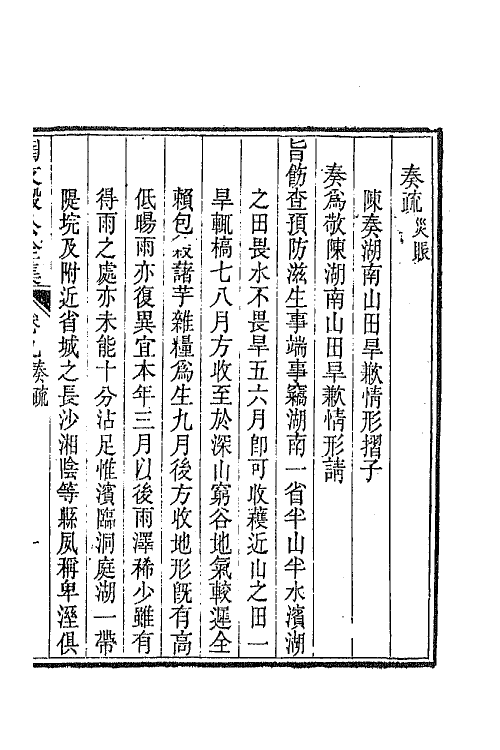 奏疏 災賑
陳奏湖南山田旱歉情形摺子
奏為敬陳湖南山田旱歉情形請
旨飭查預防滋生事端事竊湖南一省半山半水濱湖
之田畏水不畏旱五六月卽可收穫近山之田一
旱輒槁七八月方收至於深山窮谷地氣較遲全
賴包穀藷芋雜糧為生九月後方收地形旣有高
低暘雨亦復異宜本年三月以後雨澤稀少雖有
得雨之處亦未能十分沾足惟濱臨洞庭湖一帶
隄垸及附近省城之長沙湘陰等縣夙稱卑溼俱
陶文毅公全集 卷九 奏疏 一